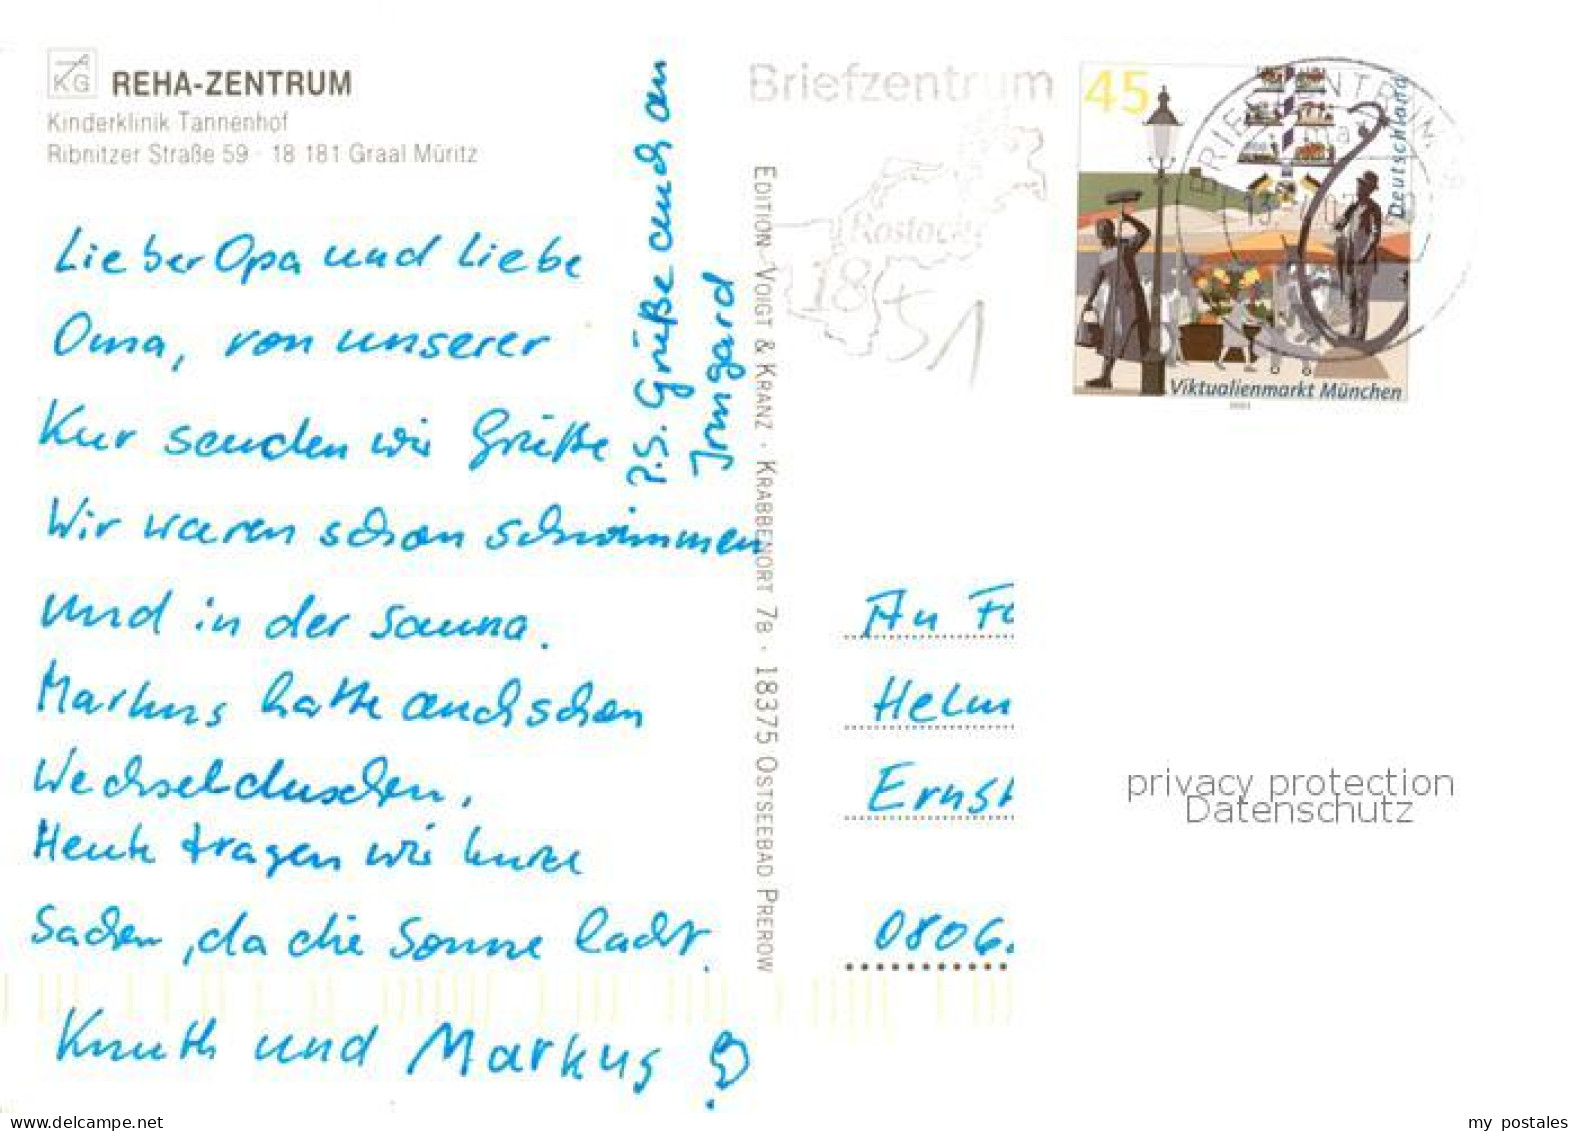 AKG
REHA-ZENTRUM
Kinderklinik Tannenhof
Ribnitzer Straße 59 · 18 181 Graal Müritz
Lieber Opa und Liebe
Oma, von unserer
Kur senden wir Grüße
Wir waren schon schwimmen
und in der Sauna.
Markus hatte auch schon
Wechselduschen.
Heute tragen wir kurze
Sachen, da die Sonne lacht.
Knuth und Markus
P.S. Grüße auch an
Irmgard
EDITION VOIGT & KRANZ · KRABBENORT 7B · 18375 OSTSEEBAD PREROW
Briefzentrum
Rostock
18
51
45
Deutschland
Viktualienmarkt München
BRIEFZENTRUM
An Fa
Helm
Ernst
0806
privacy protection
Datenschutz
my postales